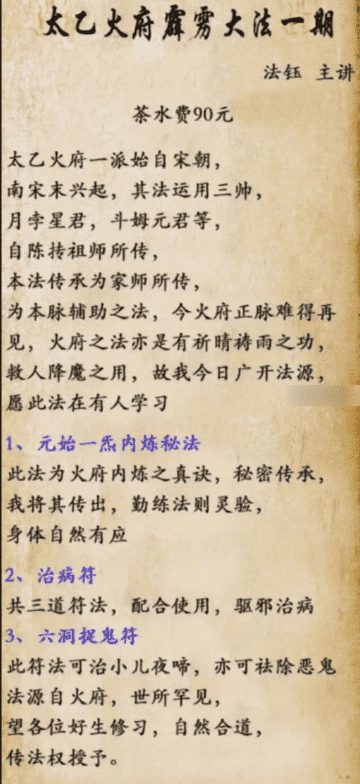 太乙火府霹雳大法一期
法钰 主讲
茶水费90元
太乙火府一派始自宋朝，
南宋末兴起，其法运用三帅，
月孛星君，斗姆元君等，
自陈抟祖师所传，
本法传承为家师所传，
为本脉辅助之法，今火府正脉难得再
见，火府之法亦是有祈晴祷雨之功，
救人降魔之用，故我今日广开法源，
愿此法在有人学习
1、元始一炁内炼秘法
此法为火府内炼之真诀，秘密传承，
我将其传出，勤练法则灵验，
身体自然有应
2、治病符
共三道符法，配合使用，驱邪治病
3、六洞捉鬼符
此符法可治小儿夜啼，亦可祛除恶鬼
法源自火府，世所罕见，
望各位好生修习，自然合道，
传法权授予。